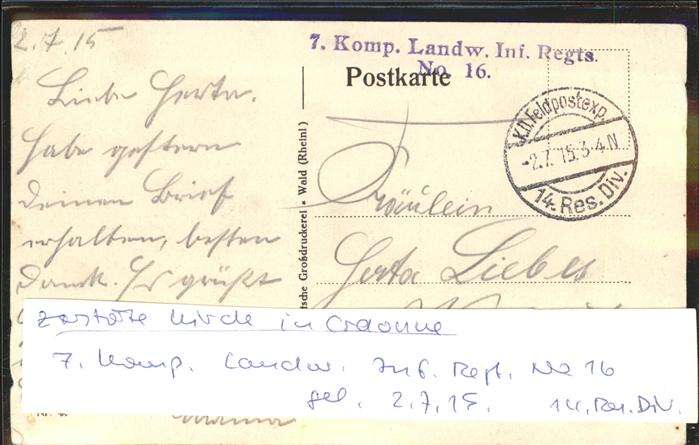 2.7.15
Liebe Herta.
Habe gestern
deinen Brief
erhalten, besten
Dank. Es grüßt
7. Komp. Landw. Inf. Regts.
No. 16.
Postkarte
K.D. Feldpostexp.
-2.7.15.3-4.N
14. Res. Div.
Fräulein
Herta Liebes
tsche Großdruckerei • Wald (Rheinl)
zerstörte Kirche in Craonne
7. Komp. Landw. Inf. Regt. No 16
gel. 2.7.15. 14. Res. Div.